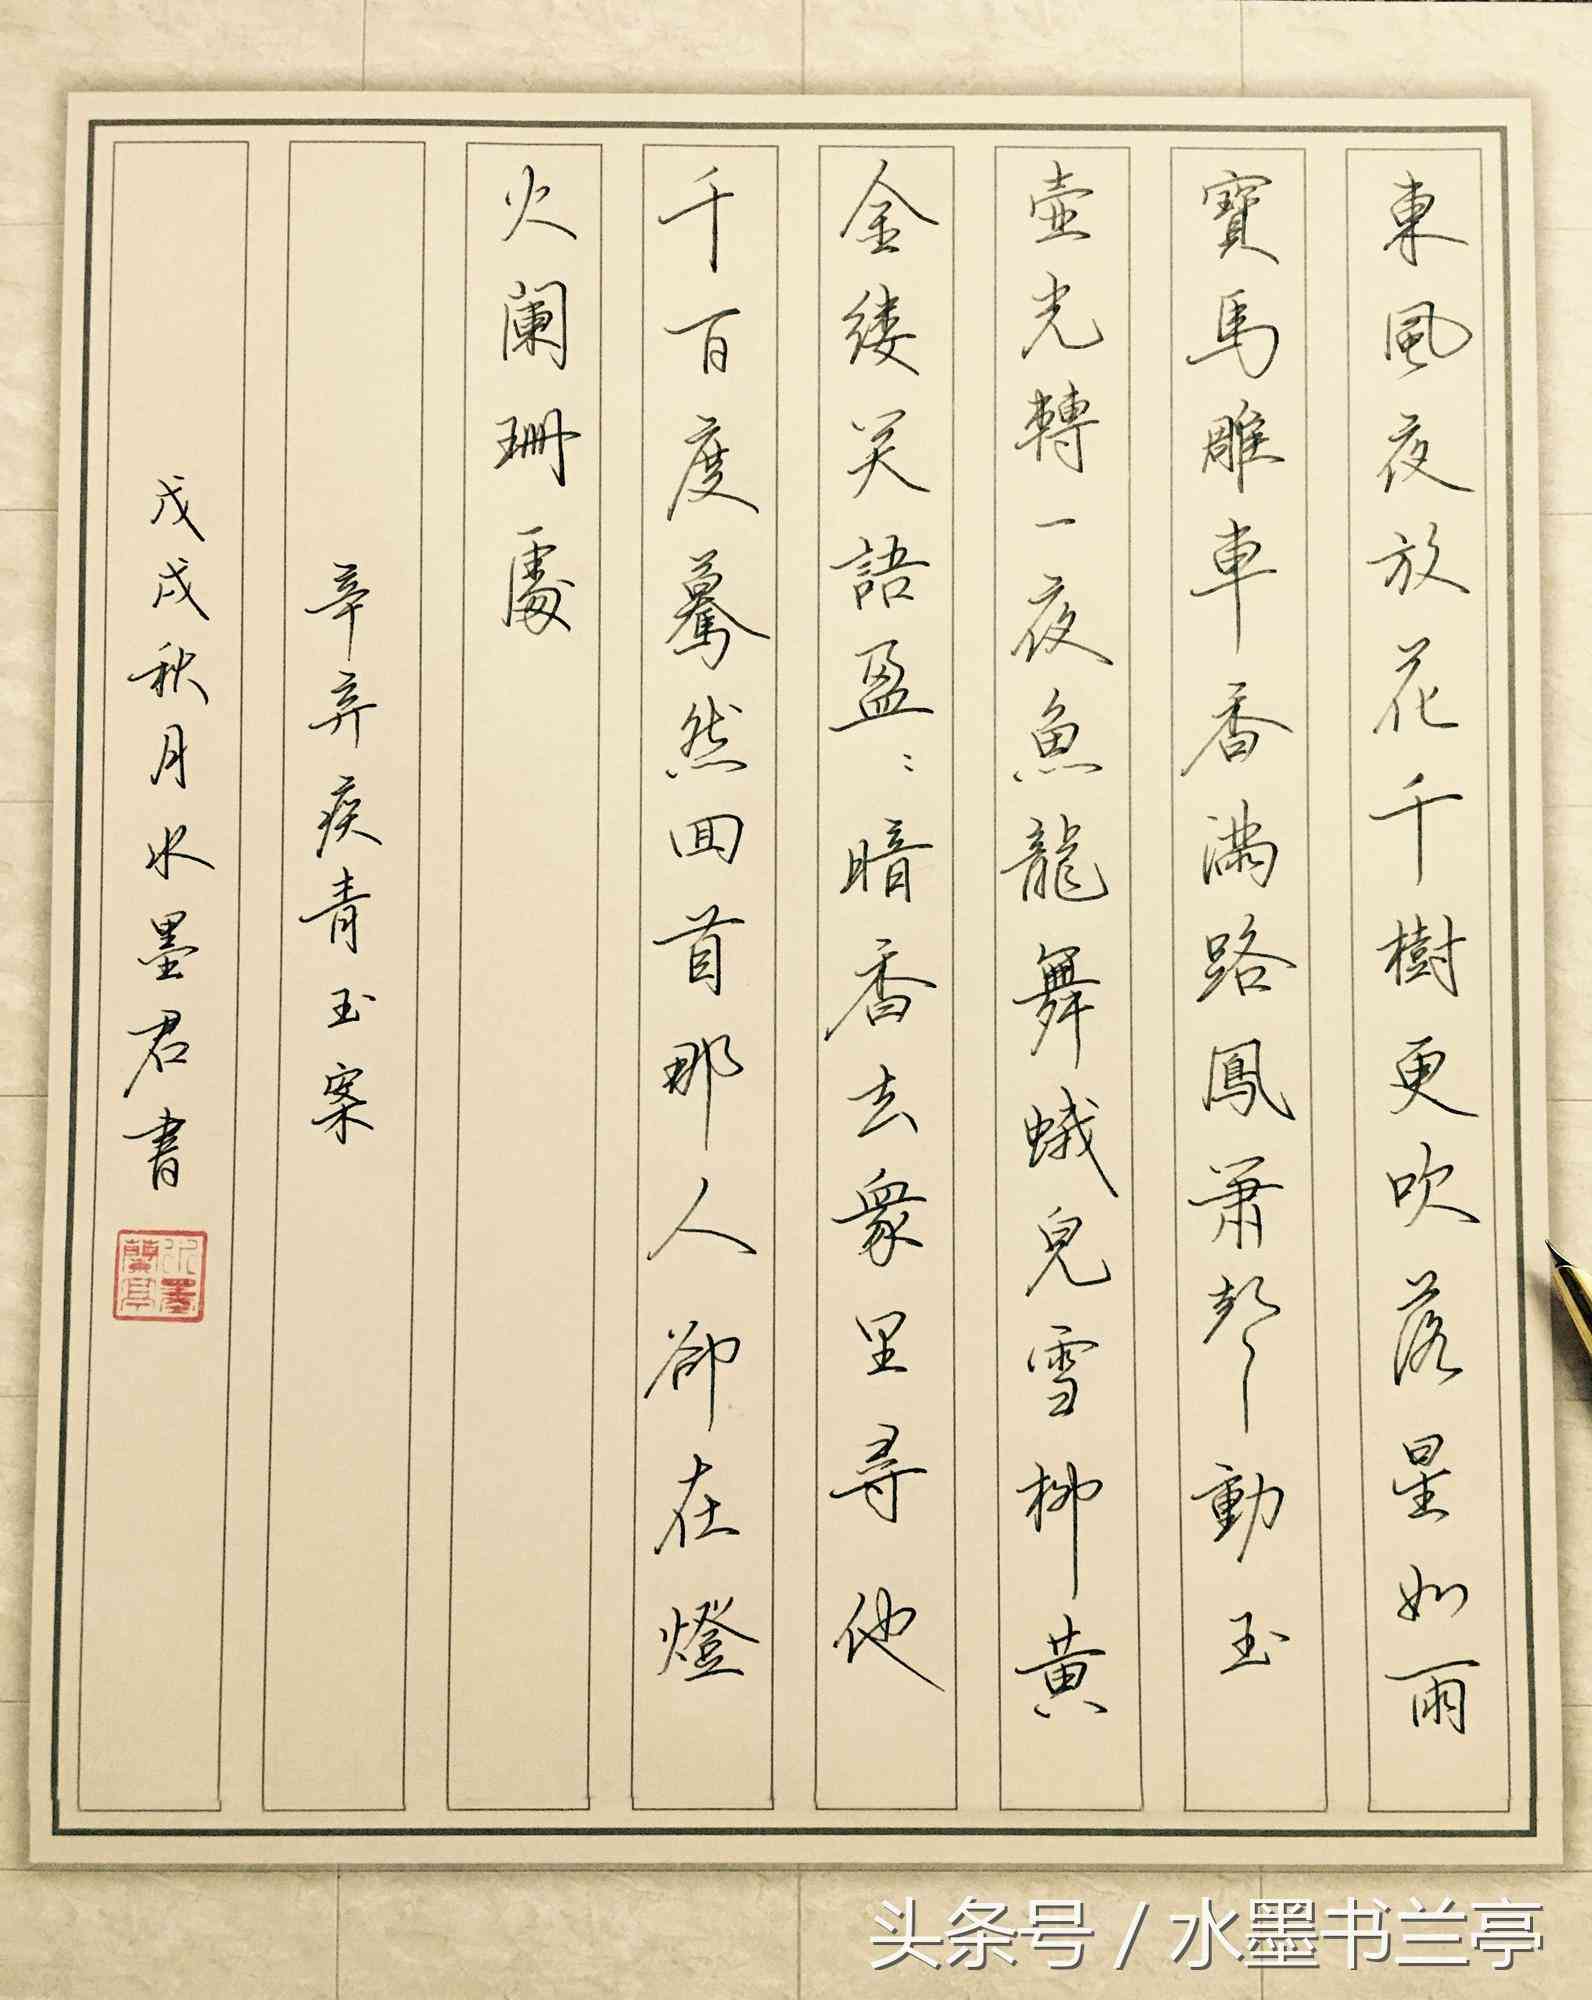 東風夜放花千樹更吹落星如雨
寶馬雕車香滿路鳳簫聲動玉
壺光轉一夜魚龍舞蛾兒雪柳黃
金缕笑語盈〻暗香去衆里尋他
千百度驀然回首那人卻在燈
火闌珊處
辛弃疾青玉案
戊戌秋月水墨君書
水墨蘭亭
头条号 / 水墨书兰亭